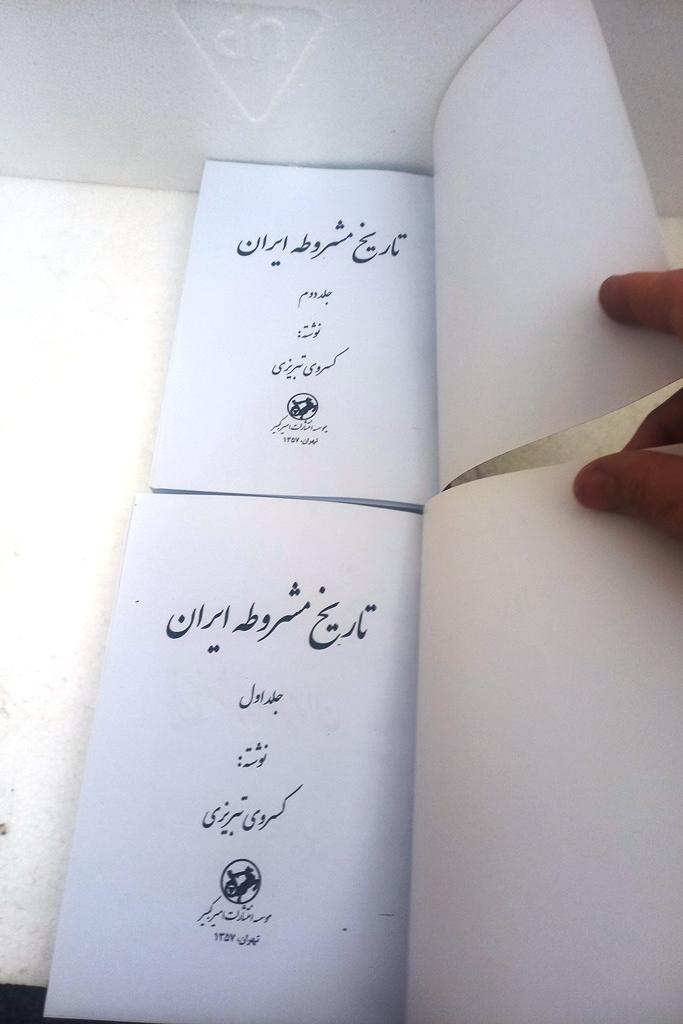 UP
تاریخ مشروطه ایران
جلد دوم
نوشته:
کسروی تبریزی
موسسه انتشارات امیرکبیر
تهران، ۱۳۵۷
تاریخ مشروطه ایران
جلد اول
نوشته:
کسروی تبریزی
موسسه انتشارات امیرکبیر
تهران، ۱۳۵۷